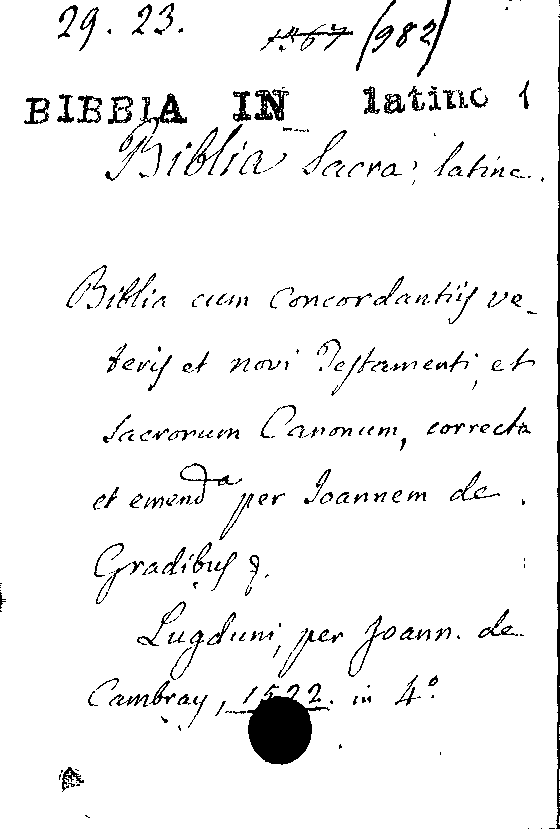 29. 23. 1567 (982)
BIBBIA IN latino 1
Biblia Sacra, latine.
Biblia cum Concordantiis ve-
teris et novi Testamenti, et
Sacrorum Canonum, correcta
et emendᵃ per Joannem de
Gradibus &.
Lugduni, per Joann. de
Cambray, 1522. in 4°